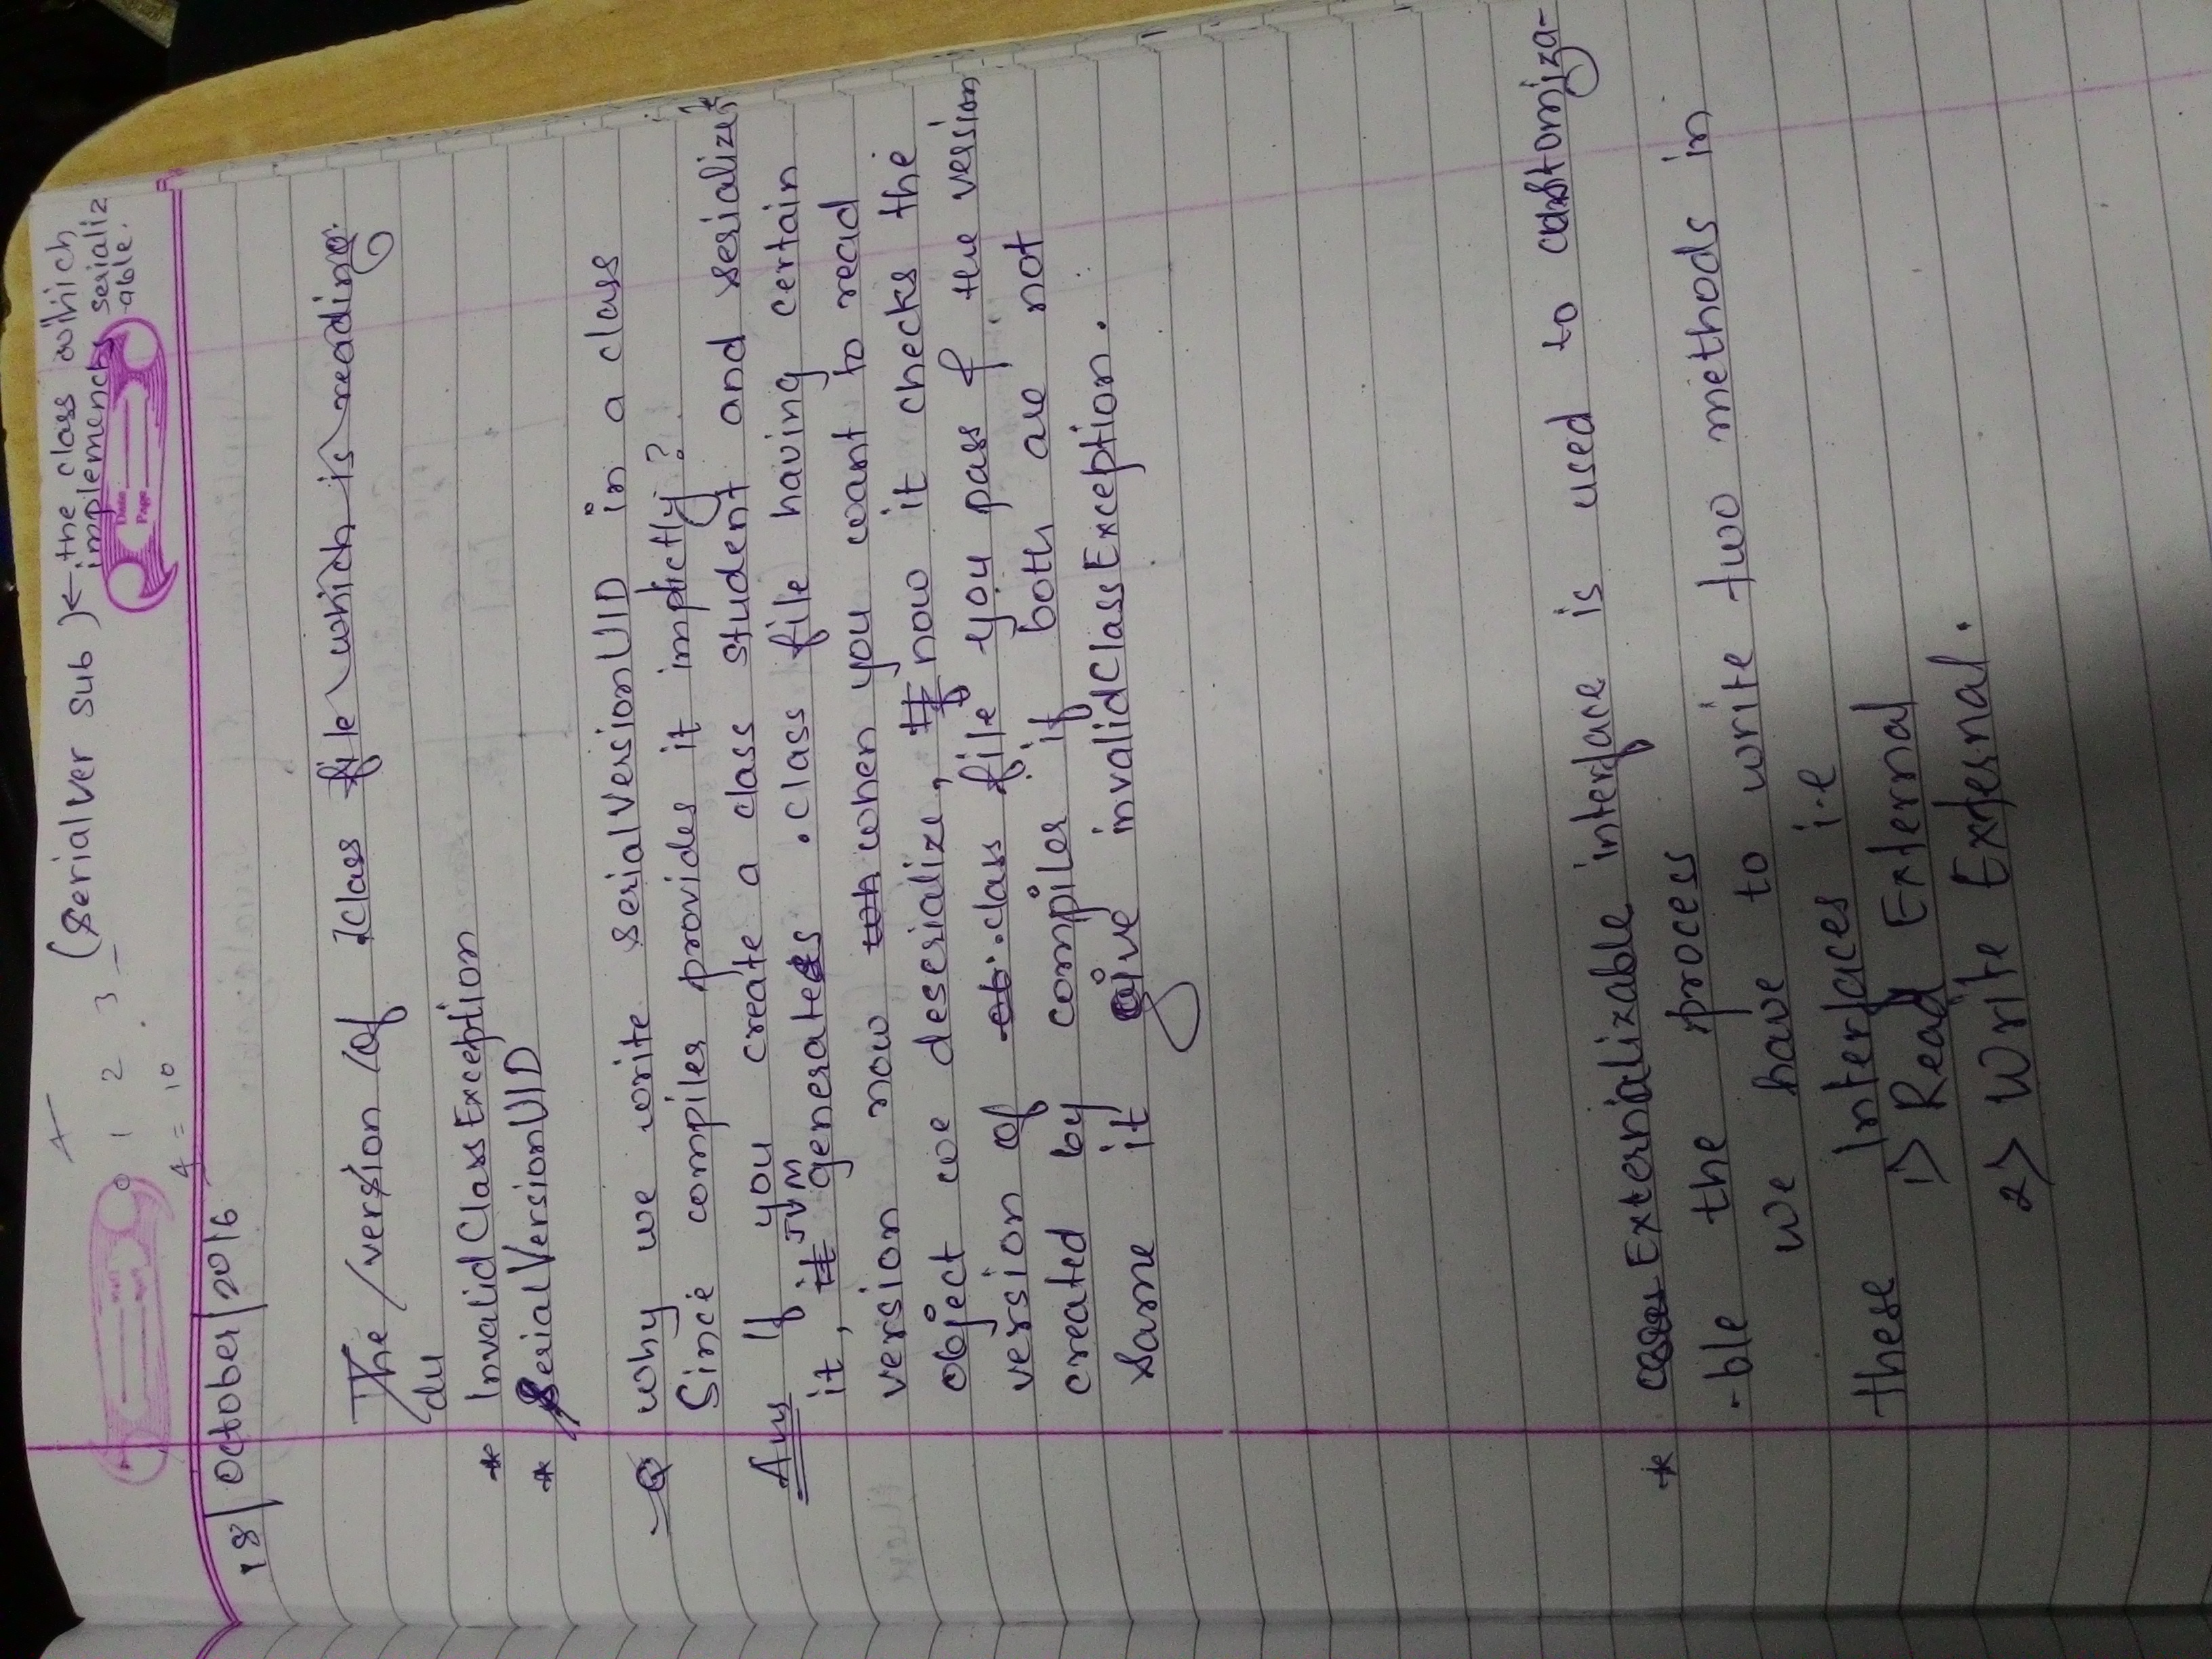 (Serialver sub) ← the class which
implements serializ
-able.
0 1 2 3
4 = 10
Date
Page
18/October/2016
The version of .class file which is reading
du
* InvalidClassException
* SerialVersionUID
Q Why we write serialVersionUID in a class
Since compiler provides it implictly?
Ans If you create a class student and serialize
it, it JVM generates .class file having certain
version now wh when you want to read
object we deserialize, If now it checks the
version of ob .class file you pass & the version
created by compiler if both are not
same it give invalidClassException.
* Externalizable interface is used to customiza-
-ble the process
we have to write two methods in
these Interfaces i.e
1> Read External
2> Write External.